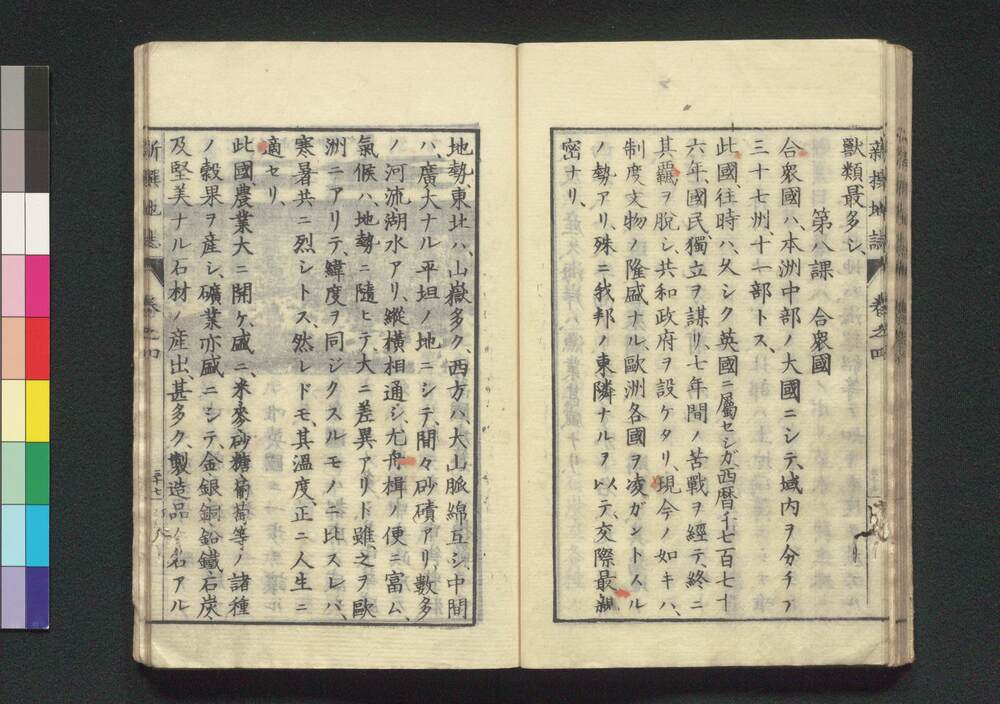 獸類最多シ、
第八課 合衆國
合衆國ハ、本洲中部ノ大國ニシテ、域内ヲ分チテ
三十七州、十一部トス、
此國、往時ハ、久シク英國ニ屬セシガ、西曆千七百七十
六年、國民、獨立ヲ謀リ、七年間ノ苦戰ヲ經テ、終ニ
其羈ヲ脫シ、共和政府ヲ設ケタリ、現今ノ如キハ、
制度文物ノ隆盛ナル、歐洲各國ヲ凌ガントスル
ノ勢アリ、殊ニ我邦ノ東隣ナルヲ以テ、交際最親
密ナリ、
地勢、東北ハ、山嶽多ク、西方ハ、大山脈綿亙シ、中間
ハ、廣大ナル平坦ノ地ニシテ、間々砂磧アリ、數多
ノ河流湖水アリ、縱橫相通シ、尤舟楫ノ便ニ富ム、
氣候ハ、地勢ニ隨ヒテ、大ニ差異アリト雖、之ヲ歐
洲ニアリテ、緯度ヲ同ジクスルモノニ比スレバ、
寒暑共ニ烈シトス、然レドモ、其溫度、正ニ人生ニ
適セリ、
此國、農業大ニ開ケ、盛ニ米麥砂糖葡萄等ノ諸種
ノ穀果ヲ産シ、礦業亦盛ニシテ、金銀銅鉛鐵、石炭、
及堅美ナル石材ノ産出、甚多ク、製造品ノ名アル
新撰地誌 卷之四